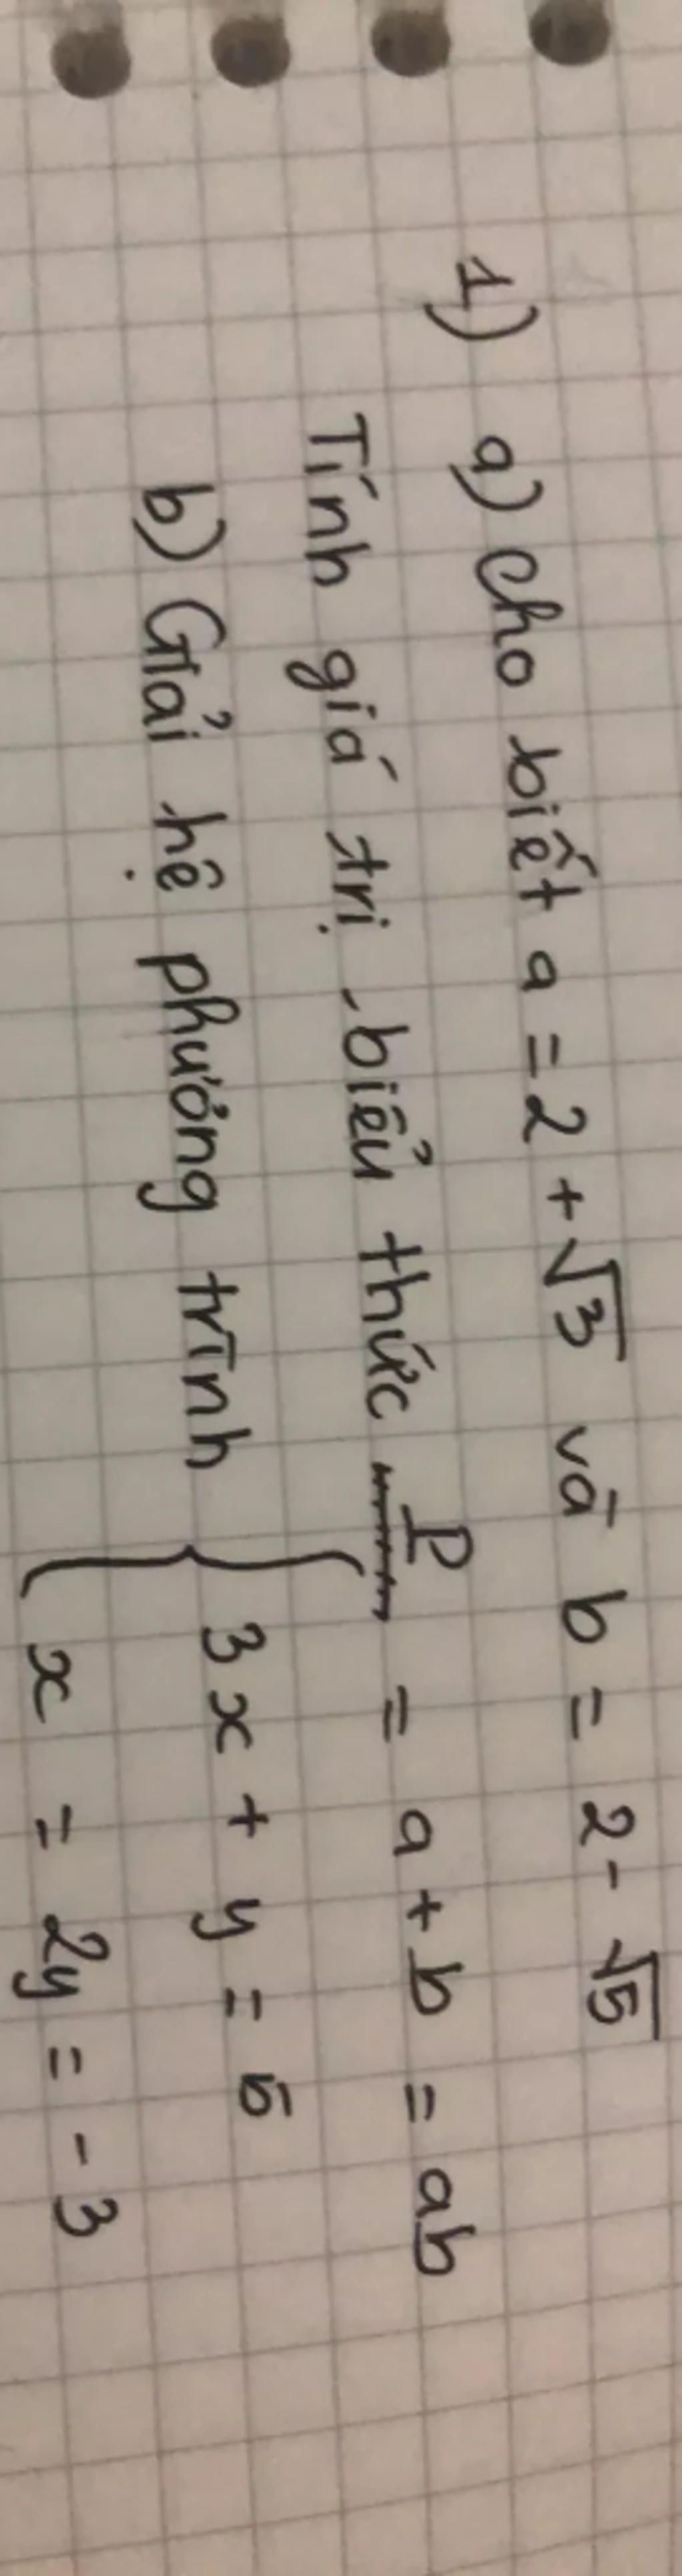 1) a) Cho biết a = 2 + √3 và b = 2 - √5
Tính giá trị biểu thức P = a + b = ab
b) Giải hệ phương trình { 3x + y = 5
x = 2y = - 3